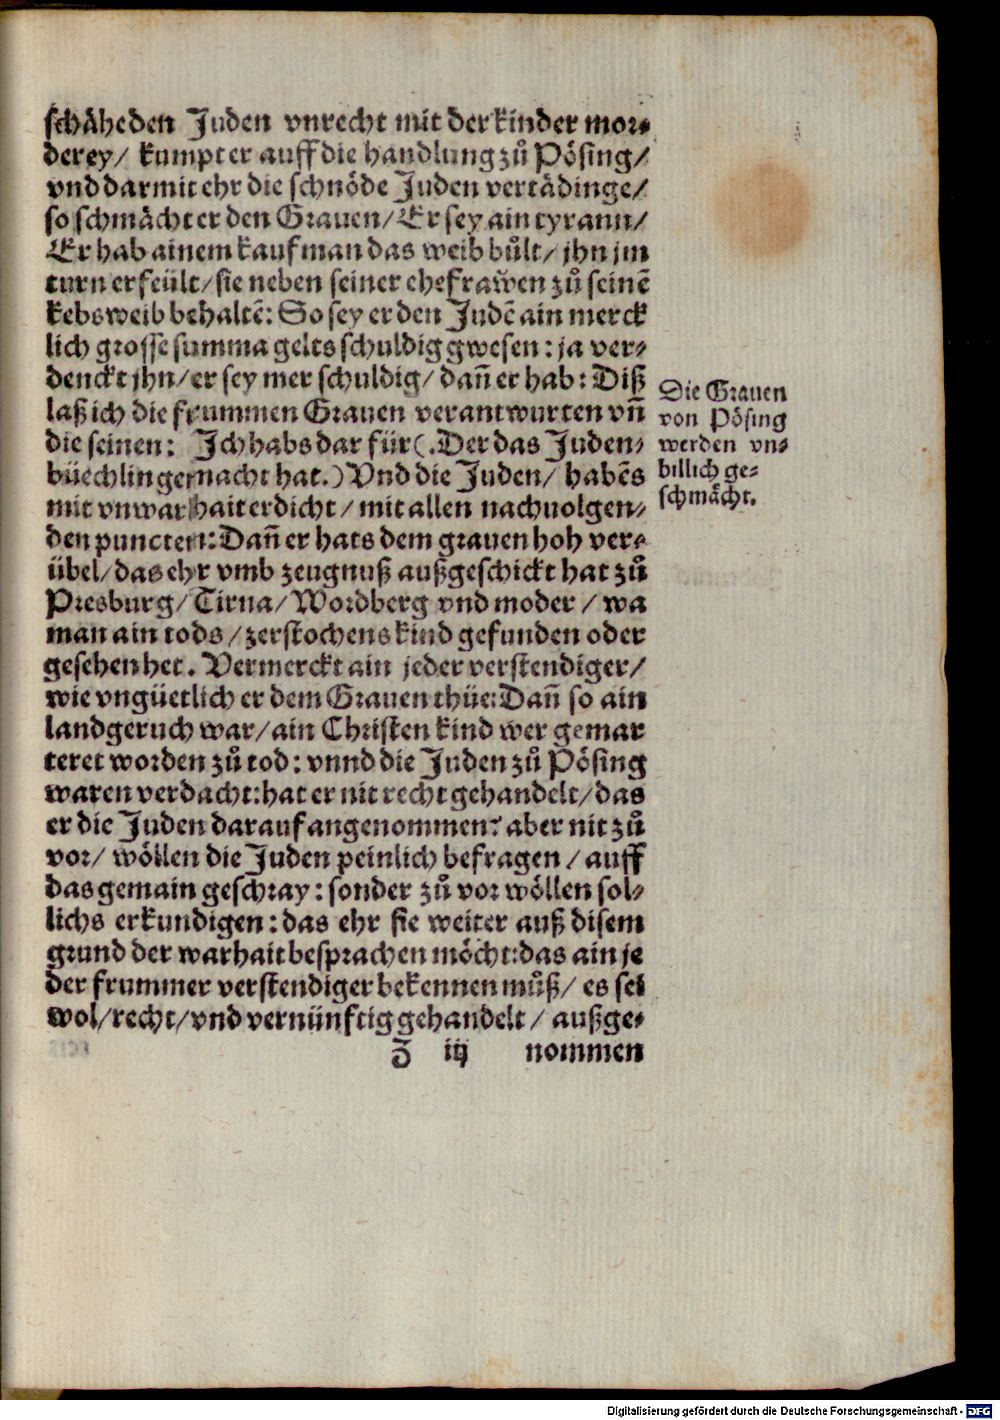 schäheden Juden vnrecht mit der kinder mor-
derey/ kumpt er auff die handlung zů Pösing/
vnd darmit ehr die schnöde Juden vertädinge/
so schmächt er den Grauen/ Er sey ain tyrann/
Er hab ainem kaufman das weib bůlt/ jhn jm
turn erfeült/ sie neben seiner ehefraẅen zů seinẽ
kebsweib behaltẽ: So sey er den Judẽ ain merck
lich grosse summa gelts schuldig gwesen: ja ver-
denckt jhn/ er sey mer schuldig/ dañ er hab: Diß
laß ich die frummen Grauen verantwurten vñ
die seinen: Ich habs dar für (.Der das Juden-
büechlin gemacht hat.) Vnd die Juden/ habẽs
mit vnwarhait erdicht/ mit allen nachuolgen-
den puncten: Dañ er hats dem grauen hoh ver-
übel/ das ehr vmb zeugnuß außgeschickt hat zů
Presburg/ Tirna/ Wordberg vnd moder/ wa
man ain tods/ zerstochens kind gefunden oder
gesehen het. Vermerckt ain jeder verstendiger/
wie vngüetlich er dem Grauen thüe: Dañ so ain
landgeruch war/ ain Christen kind wer gemar
teret worden zů tod: vnnd die Juden zů Pösing
waren verdacht: hat er nit recht gehandelt/ das
er die Juden darauf angenommen? aber nit zů
vor/ wöllen die Juden peinlich befragen/ auff
das gemain geschray: sonder zů vor wöllen sol-
lichs erkundigen: das ehr sie weiter auß disem
grund der warhait besprachen möcht: das ain je
der frummer verstendiger bekennen můß/ es sei
wol/ recht/ vnd vernünftig gehandelt/ außge-
Z iij nommen
Die Grauen
von Pösing
werden vn-
billich ge-
schmächt.
Digitalisierung gefördert durch die Deutsche Forschungsgemeinschaft - DFG